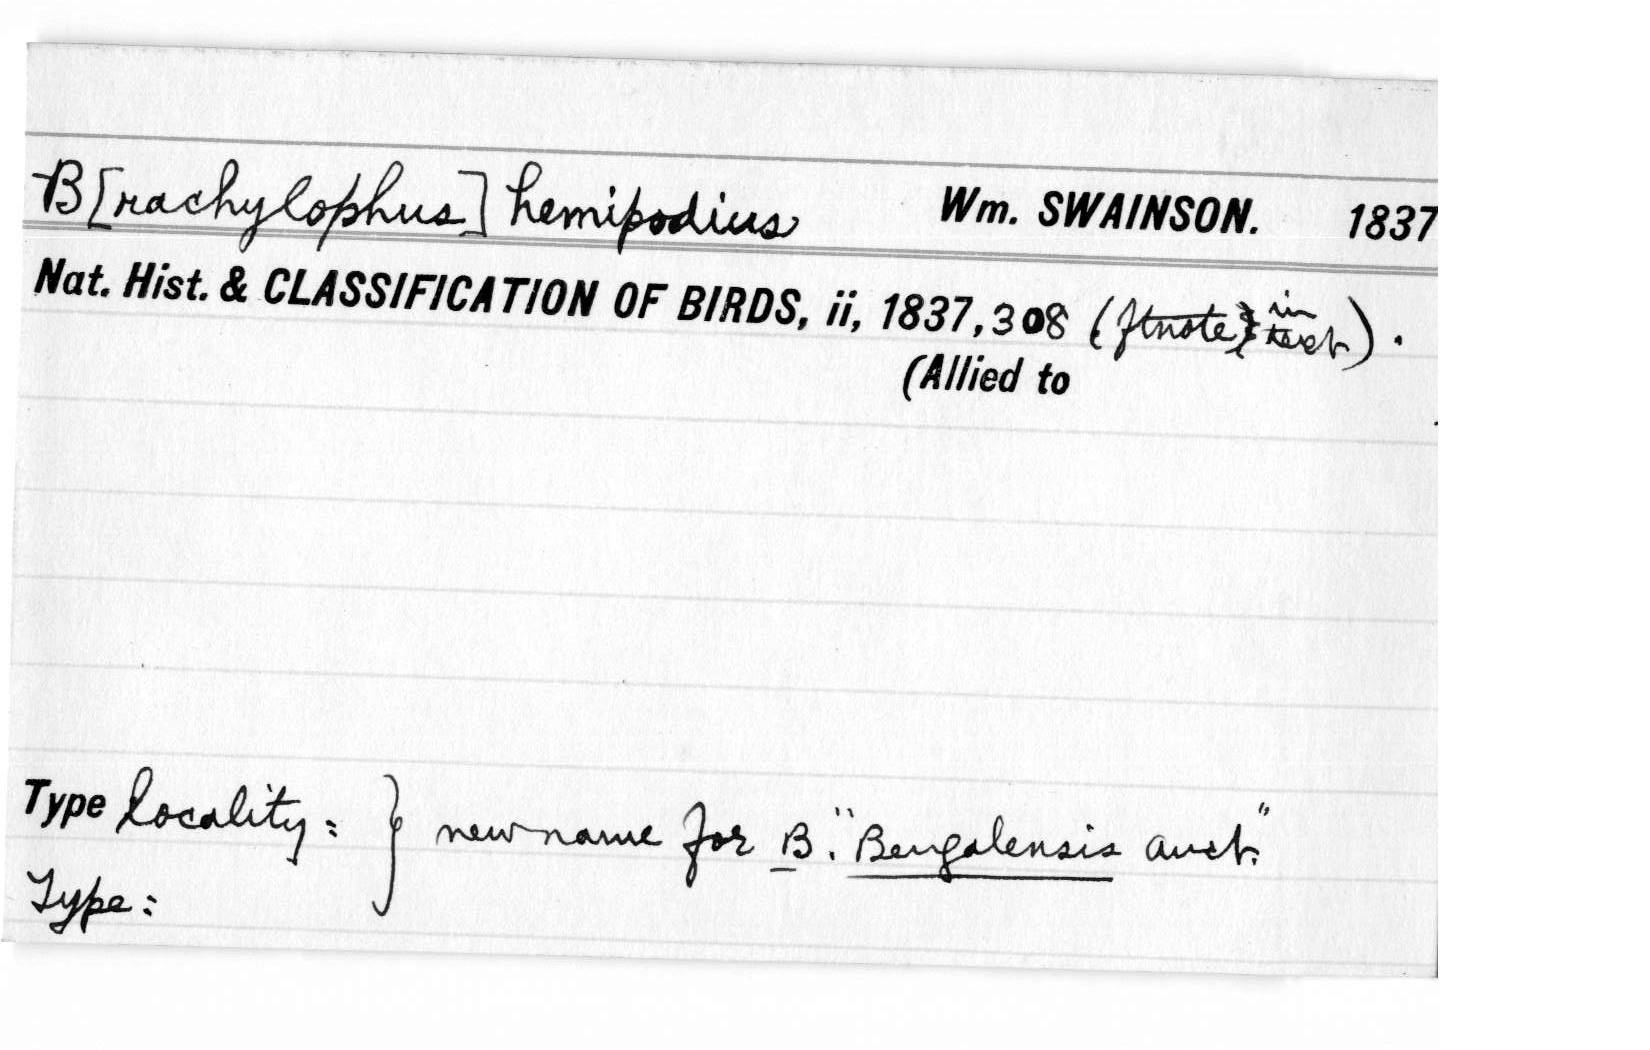 B[rachylophus] hemipodius Wm. SWAINSON. 1837
Nat. Hist. & CLASSIFICATION OF BIRDS, ii, 1837, 308 (ftnote} in text).
(Allied to
Type locality: } new name for B. "Bengalensis auct."
Type: